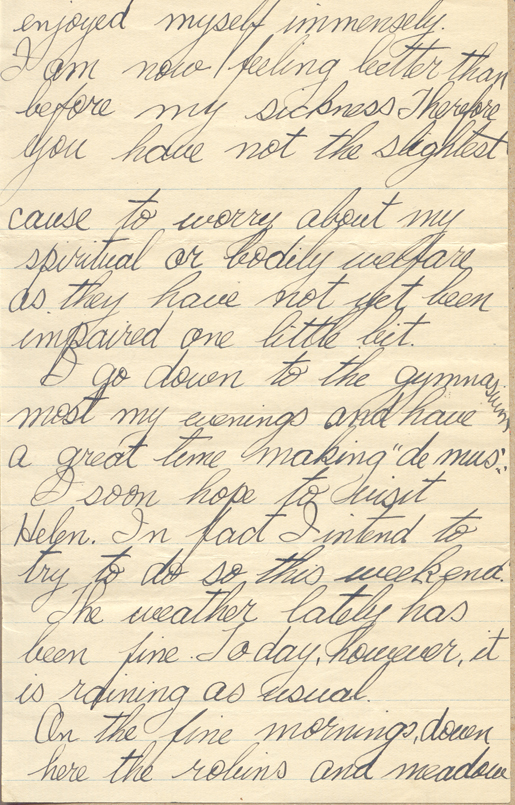 enjoyed myself immensely.
I am now feeling better than
before my sickness. Therefore
you have not the slightest
cause to worry about my
spiritual or bodily welfare
as they have not yet been
impaired one little bit.
I go down to the gymnasium
most my evenings and have
a great time making "de mus".
I soon hope to visit
Helen. In fact I intend to
try to do so this weekend.
The weather lately has
been fine. Today, however, it
is raining as usual.
On the fine mornings, down
here the robins and meadow